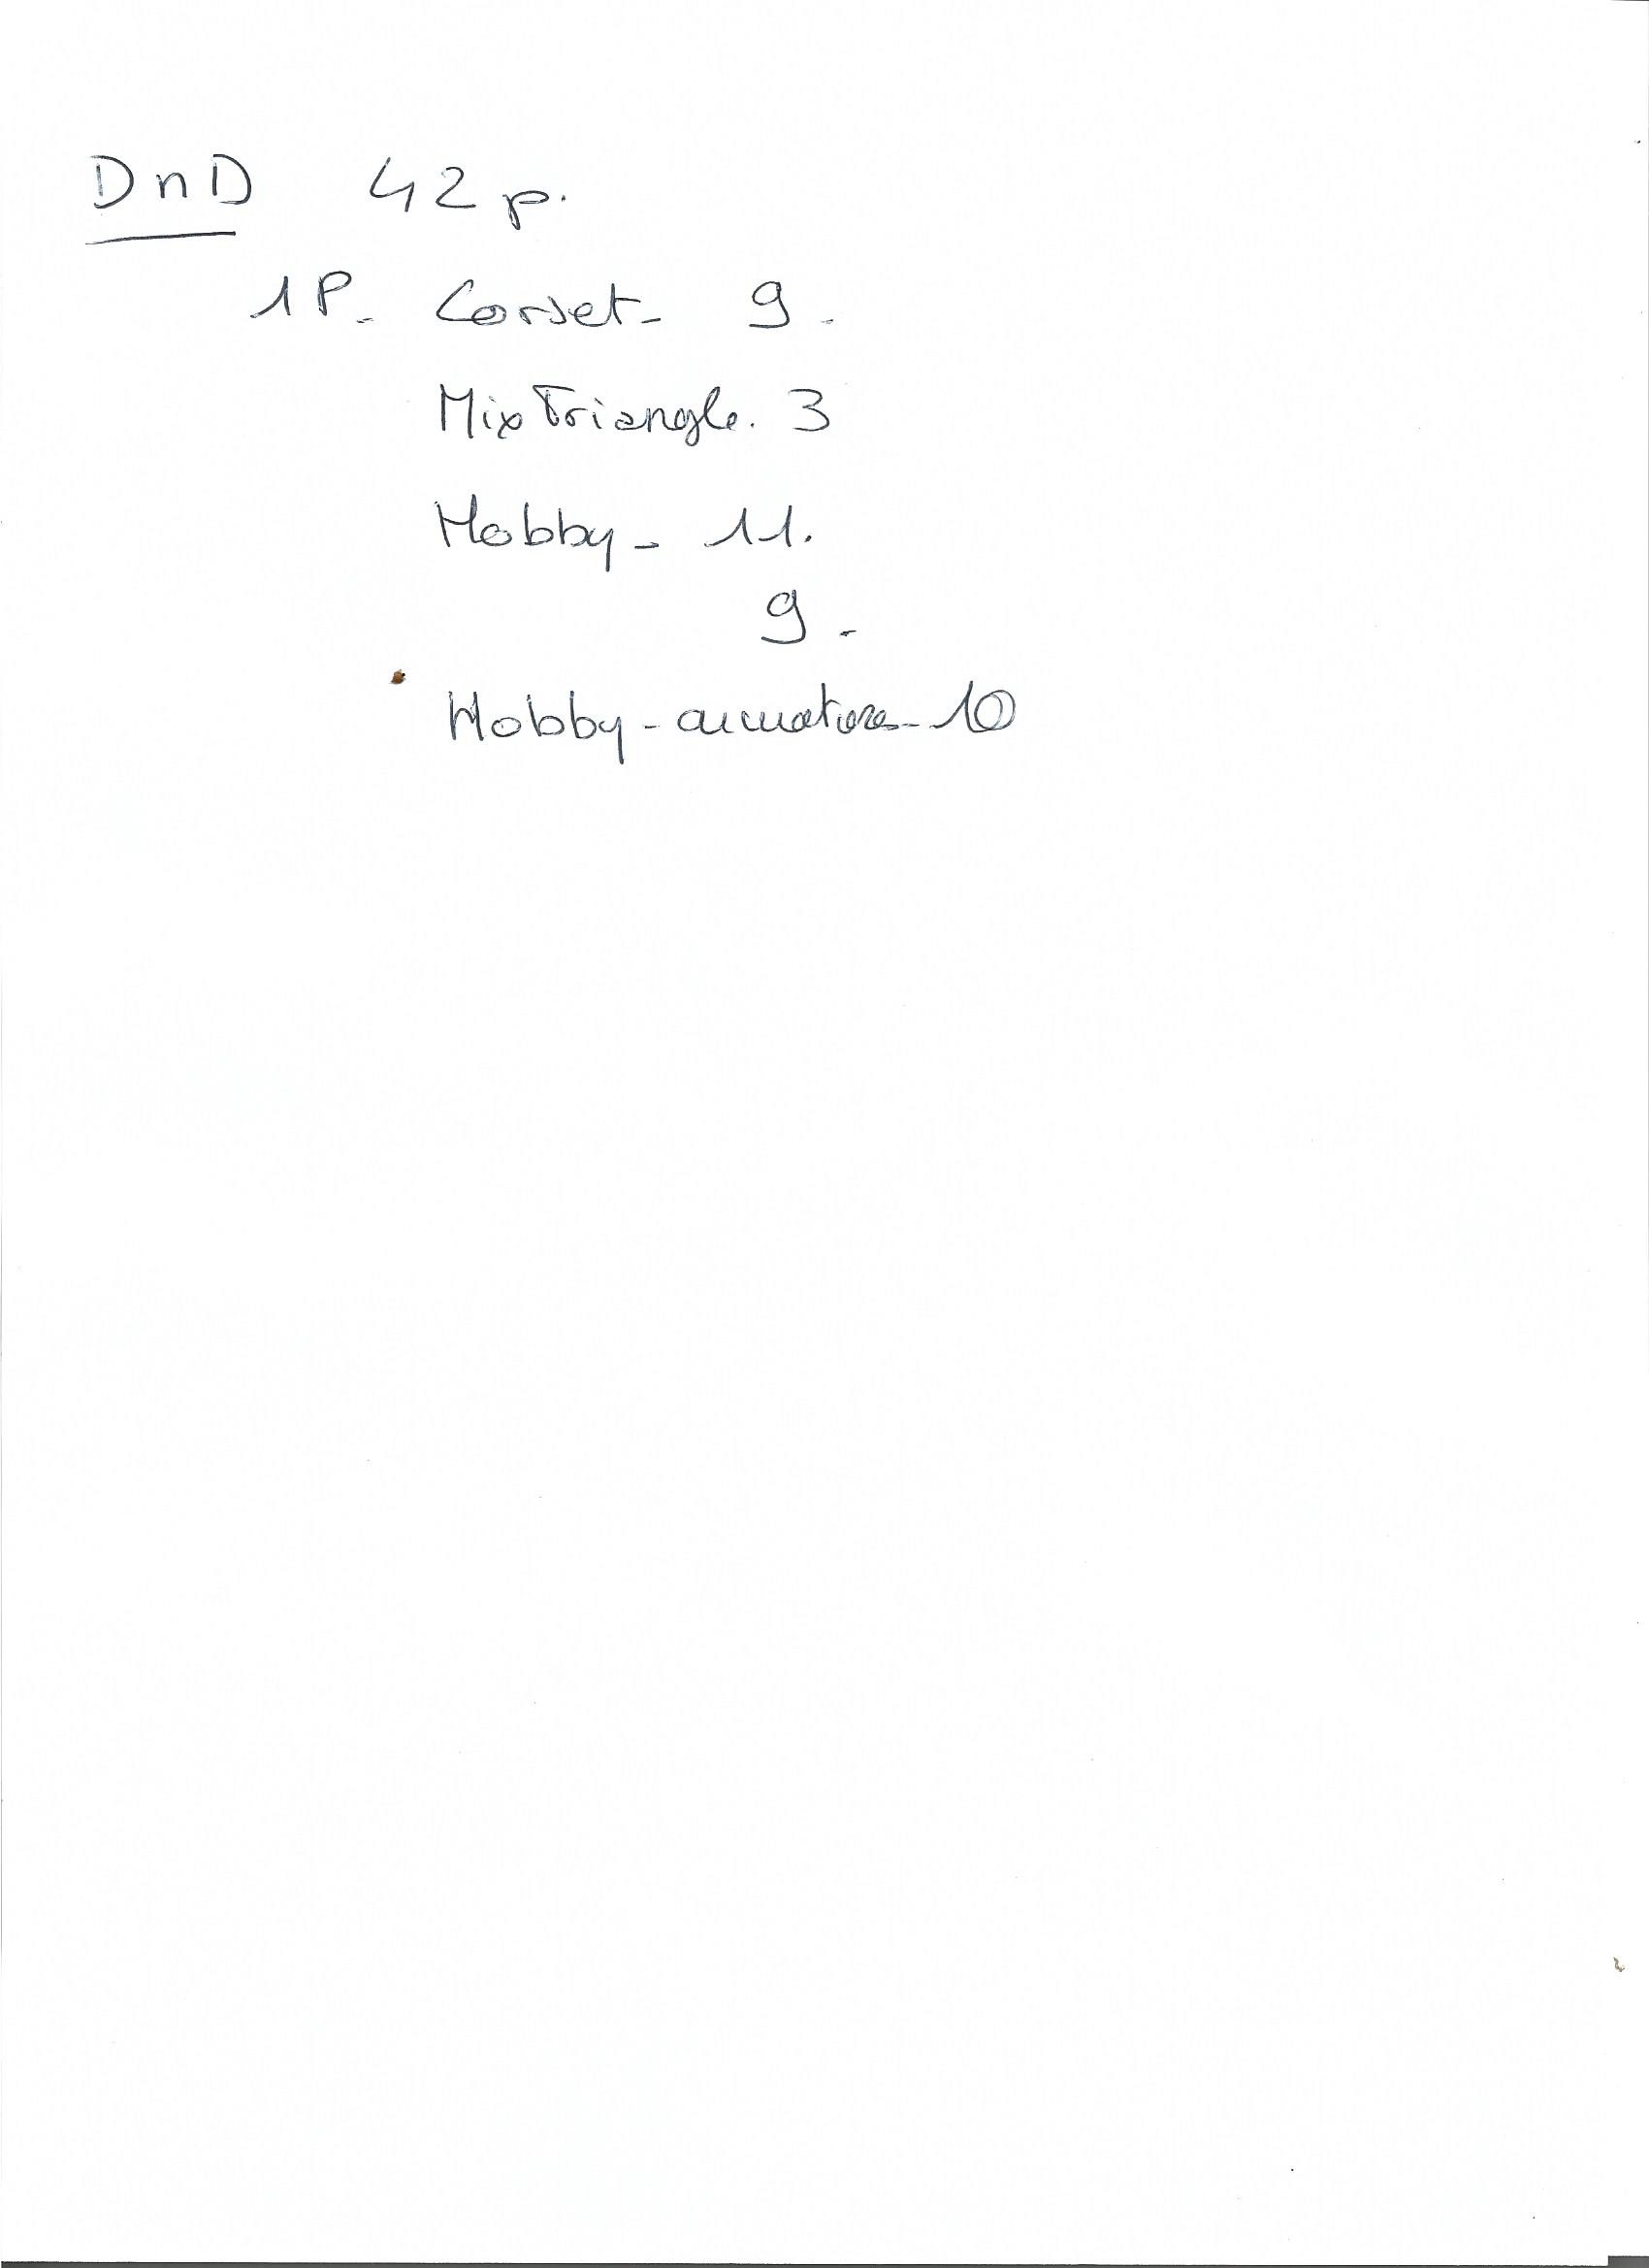 DnD 42 p.
1P. Corset - 9 -
Mix Triangle. 3
Hobby - 11.
9 -
Hobby - armature - 10